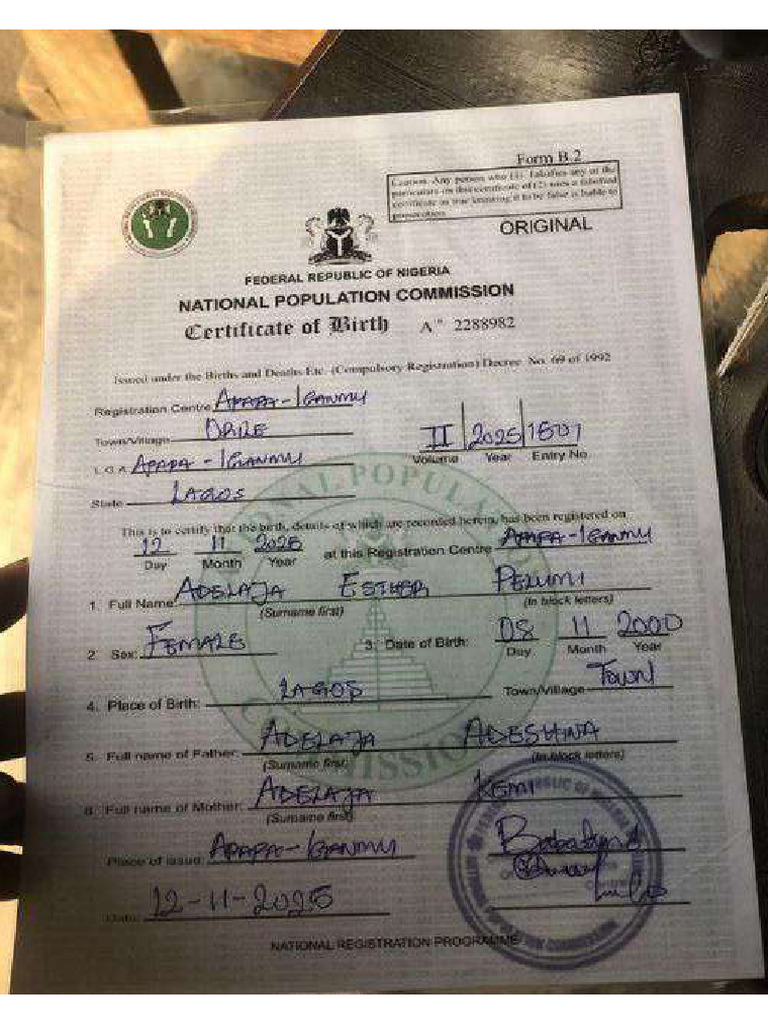 Form B.2
Caution: Any person who (1) falsifies any of the
particulars on this certificate of (2) uses a falsified
certificate as true knowing it to be false is liable to
prosecution.
ORIGINAL
FEDERAL REPUBLIC OF NIGERIA
NATIONAL POPULATION COMMISSION
Certificate of Birth A" 2288982
Issued under the Births and Deaths Etc. (Compulsory Registration) Decree No. 69 of 1992
Registration Centre APAPA-IGANMU
Town/Village ORILE
II 2025 1501
Volume Year Entry No.
L.G.A. APAPA-IGANMU
State LAGOS
This is to certify that the birth, details of which are recorded herein, has been registered on
12 11 2025 at this Registration Centre APAPA-IGANMU
Day Month Year
1. Full Name: ADELAJA ESTHER PELUMI
(Surname first) (In block letters)
2. Sex: FEMALE 3. Date of Birth: 08 11 2000
Day Month Year
4. Place of Birth: LAGOS Town/Village TOWN
5. Full name of Father: ADELAJA ADESHINA
(Surname first) (In block letters)
6. Full name of Mother: ADELAJA KEMI
(Surname first)
Place of issue: APAPA-IGANMU
Date: 12-11-2025
NATIONAL REGISTRATION PROGRAMME
NATIONAL POPULATION COMMISSION